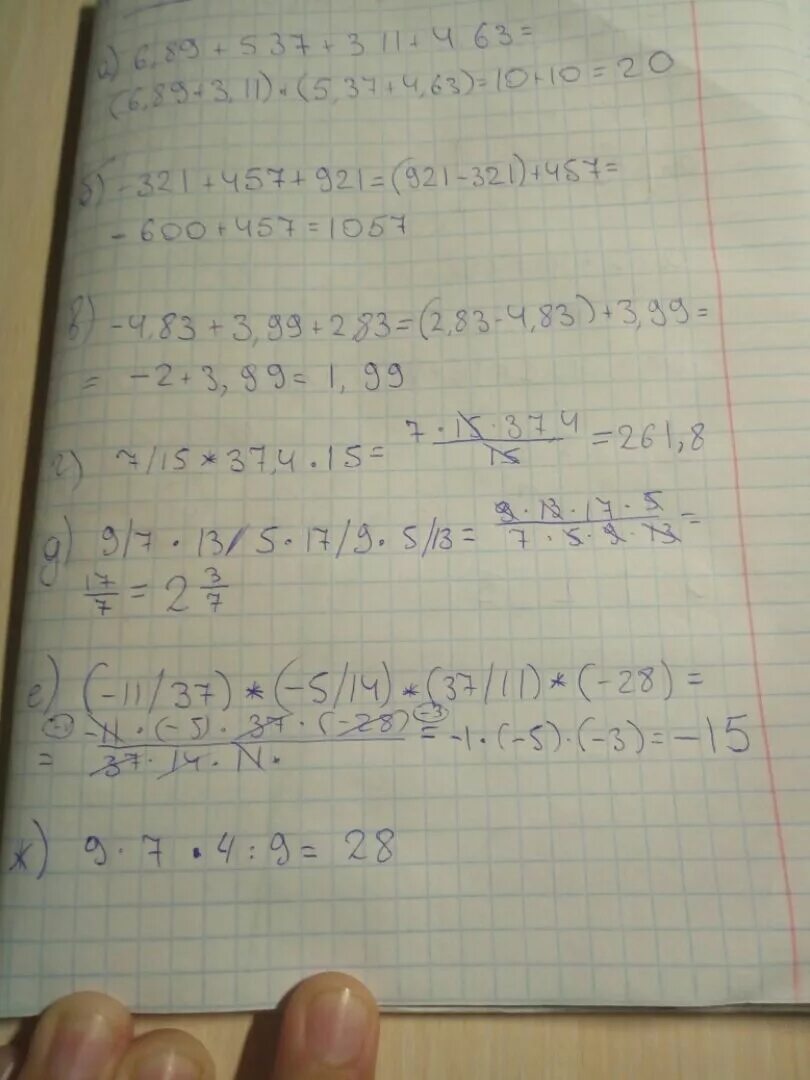 а) 6,89 + 5 37 + 3 11 + 4 63 =
(6,89+3,11)+(5,37+4,63)=10+10=20
б) -321+457+921=(921-321)+457=
- 600+457=1057
в) -4,83+3,99+2,83=(2,83-4,83)+3,99=
= -2+3,99=1,99
г) 7/15*37,4·15= 7·15·37,4/15 =261,8
д) 9/7·13/5·17/9·5/13= 9·13·17·5/7·5·9·13 =
17/7 = 2 3/7
е) (-11/37)*(-5/14)*(37/11)*(-28)=
= -11·(-5)·37·(-28)/37·14·11· -3 = -1·(-5)·(-3)=-15
ж) 9·7·4:9=28